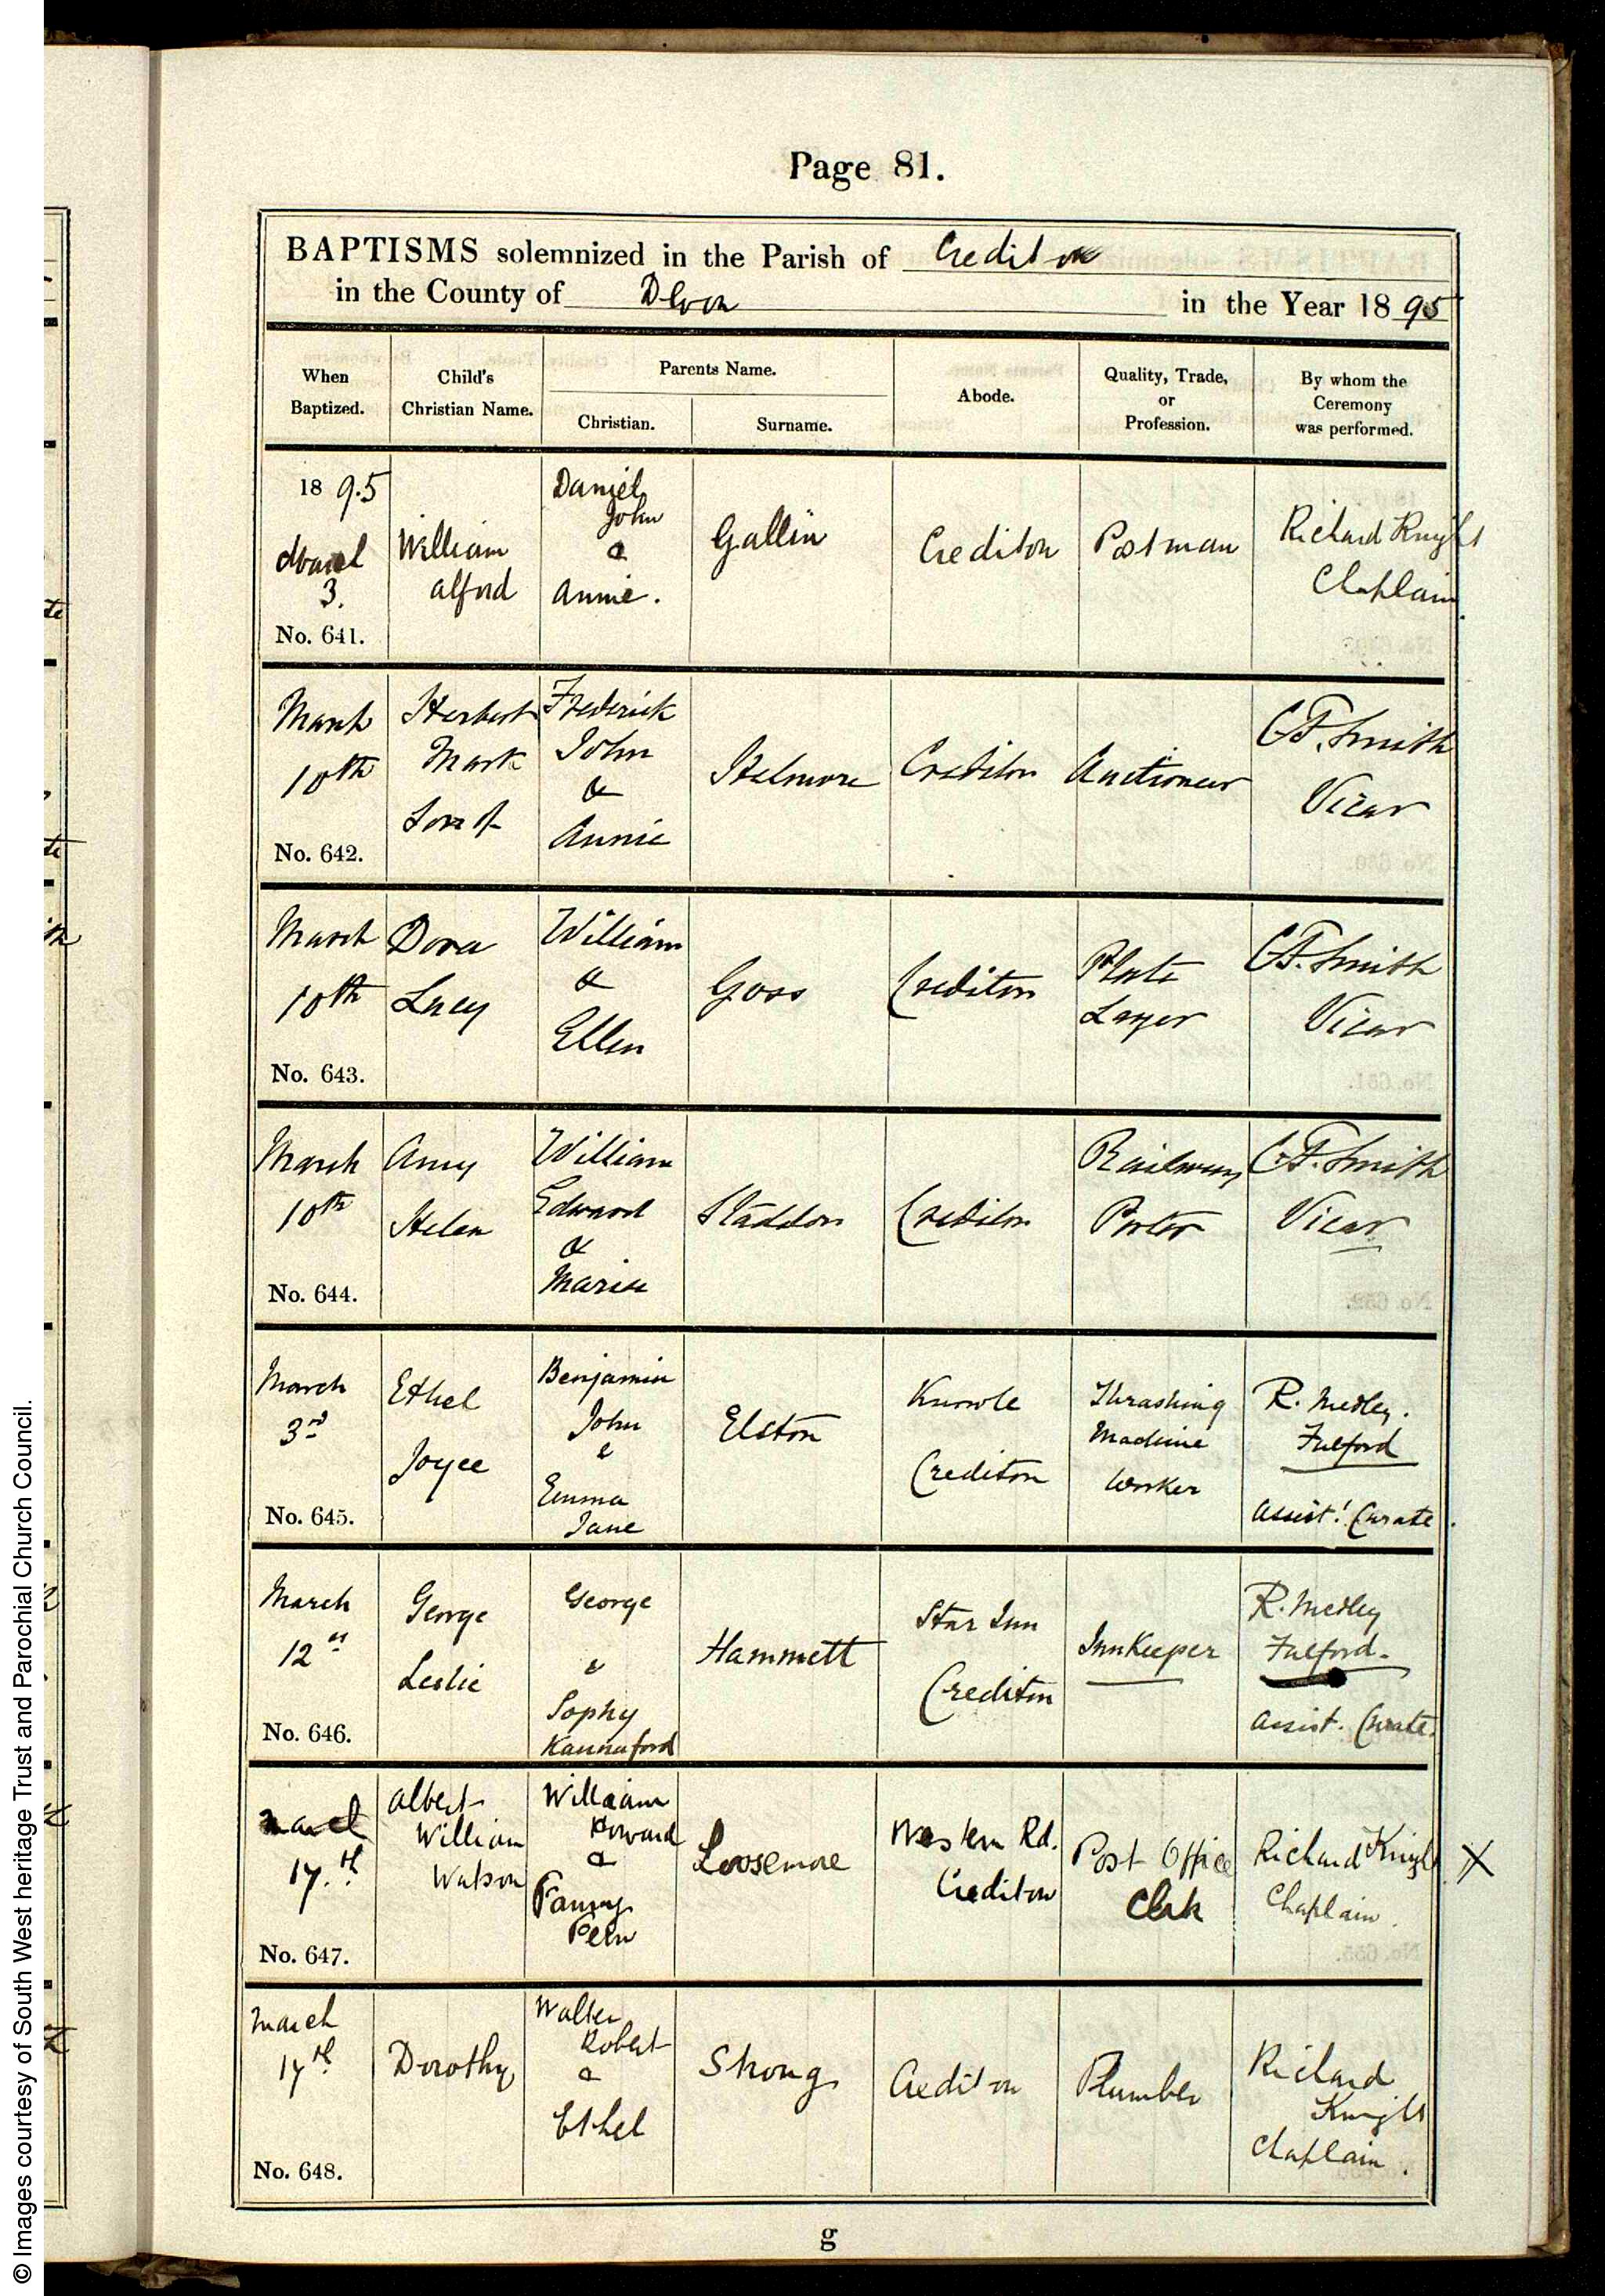 Page 81.
BAPTISMS solemnized in the Parish of Crediton
in the County of Devon in the Year 1895
When Baptized.
Child's Christian Name.
Parents Name.
Christian.
Surname.
Abode.
Quality, Trade, or Profession.
By whom the Ceremony was performed.
1895
March
3.
No. 641.
William
Alford
Daniel
John
&
Annie.
Gallin
Crediton
Postman
Richard Knight
Chaplain.
March
10th
No. 642.
Herbert
Mark
Son of
Frederick
John
&
Annie
Helmore
Crediton
Auctioneer
C.F. Smith
Vicar
March
10th
No. 643.
Dora
Lucy
William
&
Ellen
Goss
Crediton
Plate
Layer
C.F. Smith
Vicar
March
10th
No. 644.
Amy
Helen
William
Edward
&
Maria
Staddon
Crediton
Railway
Porter
C.F. Smith
Vicar
March
3rd
No. 645.
Ethel
Joyce
Benjamin
John
&
Emma
Jane
Elston
Knowle
Crediton
Thrashing
Machine
Worker
R. Medley.
Fulford
Assist! Curate.
March
12
No. 646.
George
Leslie
George
&
Sophy
Kannaford
Hammett
Star Inn
Crediton
InnKeeper
R. Medley
Fulford.
Assist. Curate.
March
17.th
No. 647.
Albert
William
Watson
William
Howard
&
Fanny
Loosemore
Western Rd.
Crediton
Post Office
Clerk
Richard Knight
Chaplain.
X
March
17th
No. 648.
Dorothy
Walter
Robert
&
Ethel
Strong
Crediton
Plumber
Richard
Knight
Chaplain.
g
© Images courtesy of South West heritage Trust and Parochial Church Council.